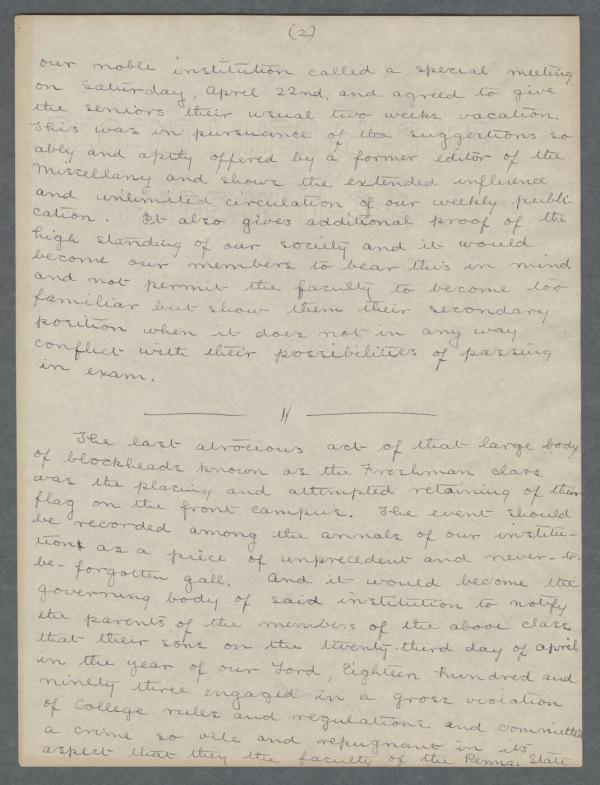 (2)
our noble institution called a special meeting
on Saturday, April 22nd, and agreed to give
the seniors their usual two weeks vacation.
This was in pursuance of the suggestions so
ably and aptly offered by a former editor of the
Miscellany and shows the extended influence
and unlimited circulation of our weekly publi-
cation. It also gives additional proof of the
high standing of our society and it would
become our members to bear this in mind
and not permit the faculty to become too
familiar but show them their secondary
position when it does not in any way
conflict with their possibilities of passing
in exam.
The last atrocious act of that large body
of blockheads known as the Freshman class
was the placing and attempted retaining of their
flag on the front campus. The event should
be recorded among the annals of our institu-
tion as a piece of unprecedent and never-to-
be-forgotten gall. And it would become the
governing body of said institution to notify
the parents of the members of the above class
that their sons on the twenty-third day of April
in the year of our Lord, Eighteen hundred and
ninety three engaged in a gross violation
of College rules and regulations and committed
a crime so vile and repugnant in its
aspect that they the faculty of the Penna. State